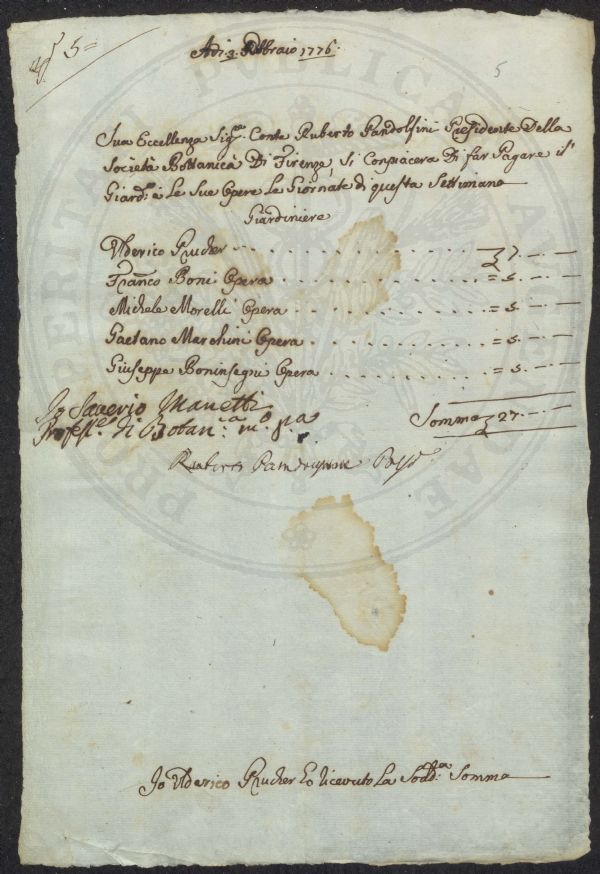 N.° 5=
5
Adi: 3. Febbraio 1776.
Sua Eccellenza Sig.re Conte Ruberto Pandolfini Presidente Della
Società Bottanica Di Firenze, Si Conpiacera Di far Pagare il
Giard.e è Le Sue Opere Le Giornate di questa Settimana
Giardiniere
Ulderico Prucher - - - - - - 7. - -
Franco Boni Opera - - - - - = 5. - -
Michele Morelli Opera - - - - = 5. - -
Gaetano Marchini Opera - - - - = 5. - -
Giuseppe Boninsegni Opera - - - = 5. - -
Somma 27. - -
Io Saverio Manetti
Profess.e di Botan.ca m.o p.a
Ruberto Pandolfini Pres.te
Io Ulderico Prucher Ho ricevuto La Sodd.a Somma
PUBLICAE
PROSPERITATI